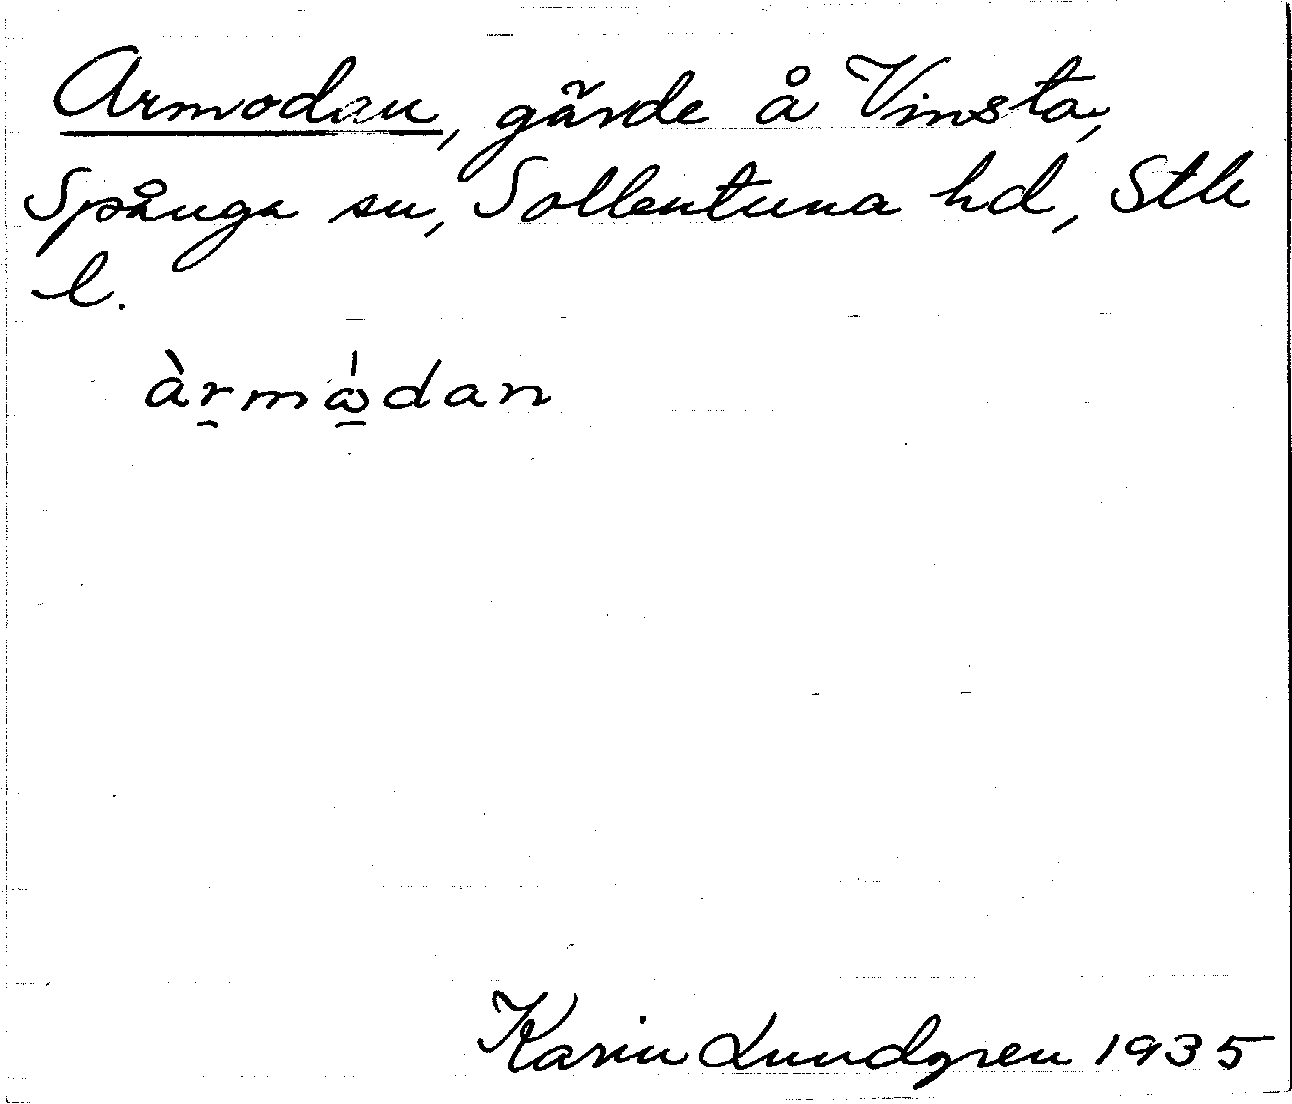 Armodan, gärde å Vinsta,
Spånga sn, Sollentuna hd, Sthlm
l.
àr̠mώ̠dan
Karin Lundgren 1935